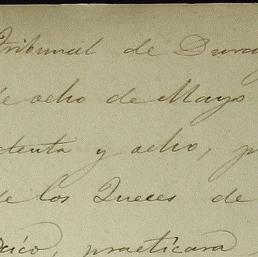 Tribunal de Dura
de ocho de Mayo
tenta y ocho, p
de los Jueces de
practicara